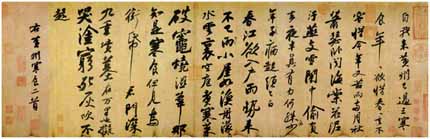 自我來黃州已過三寒
食年年欲惜春春去不
容惜今年又苦雨兩月秋
蕭瑟臥聞海棠花泥
汙燕支雪闇中偷負
去夜半真有力何殊病少
年子病起頭已白
春江欲入戶雨勢來
不已雨小屋如漁舟濛濛
水雲裏空庖煮寒菜
破竈燒濕葦那
知是寒食但見烏
銜帋君門深
九重墳墓在万里也擬
哭塗窮死灰吹不
起
右黃州寒食二首